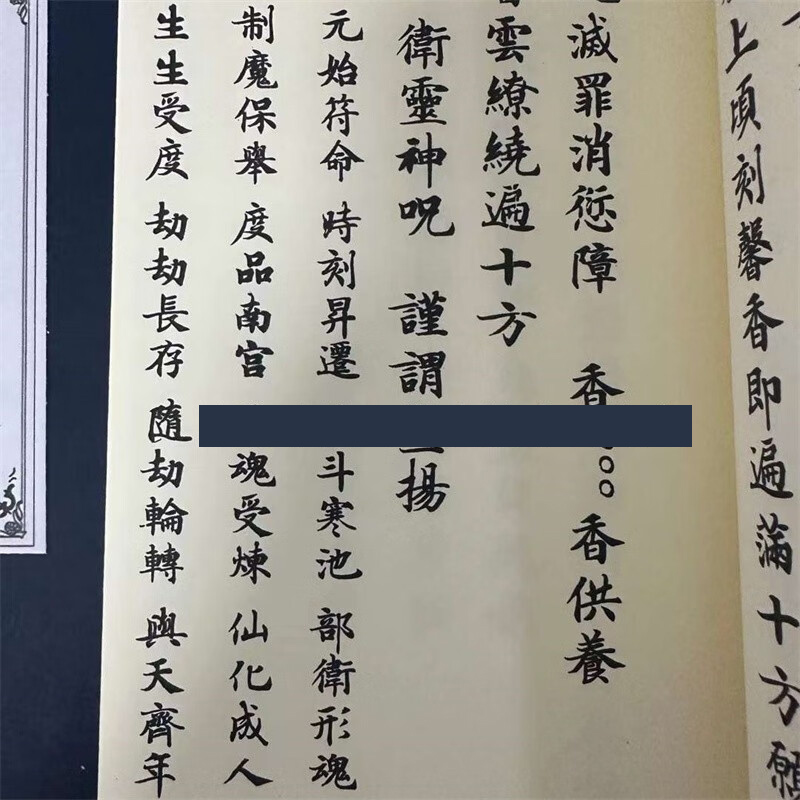 上頃刻馨香即遍滿十方願
滅罪消愆障 香 香供養
雲繚繞遍十方
衛靈神呪 謹謂 揚
元始符命 時刻昇遷 斗寒池 部衛形魂
制魔保舉 度品南宮 魂受煉 仙化成人
生生受度 劫劫長存 隨劫輪轉 與天齊年